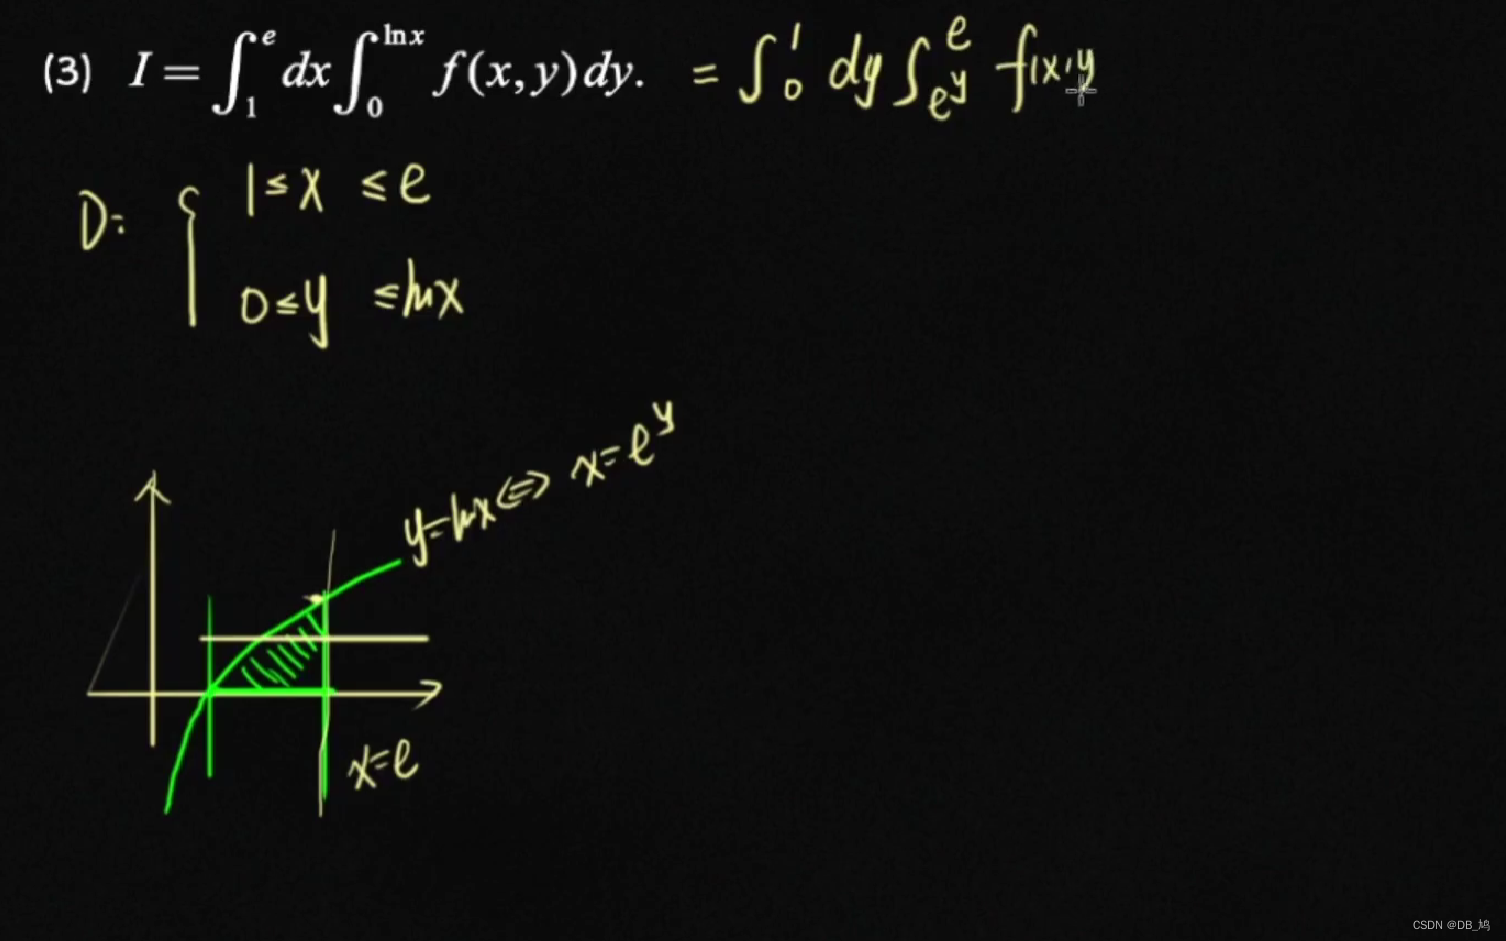 (3) I = ∫₁ᵉ dx ∫₀^{ln x} f(x, y) dy. = ∫₀¹ dy ∫_{e^y}^{e} f(x,y
D: { 1 ≤ x ≤ e
0 ≤ y ≤ ln x
y = ln x ⇔ x = e^y
x = e
CSDN @DB_鸠